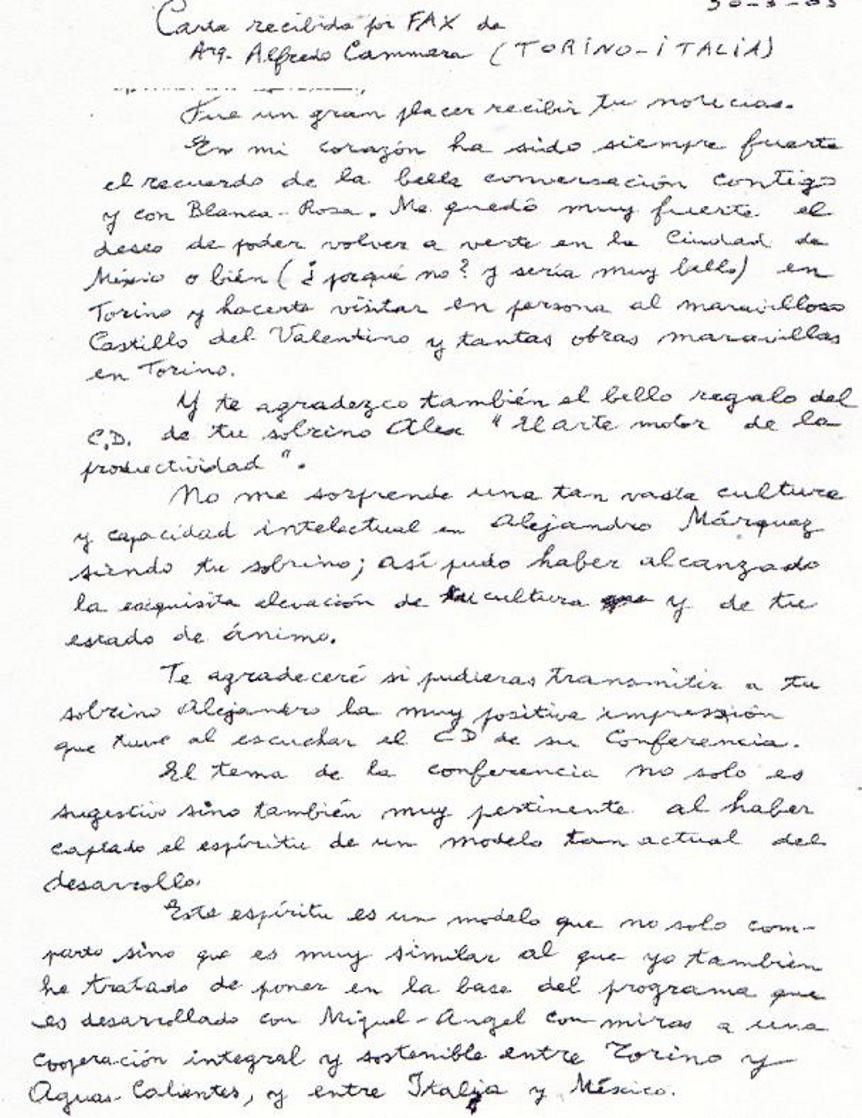 30-3-05
Carta recibida por FAX de
Arq. Alfredo Cammara (TORINO-ITALIA)
Fue un gran placer recibir tu noticias.
En mi corazón ha sido siempre fuerte
el recuerdo de la bella conversación contigo
y con Blanca-Rosa. Me quedó muy fuerte el
deseo de poder volver a verte en la Ciudad de
México o bién (¿porqué no? y sería muy bello) en
Torino y hacerte visitar en persona al maravilloso
Castillo del Valentino y tantas obras maravillas
en Torino.
Y te agradezco también el bello regalo del
C.D. de tu sobrino Alex "El arte motor de la
productividad".
No me sorprende una tan vasta cultura
y capacidad intelectual en Alejandro Márquez
siendo tu sobrino; así pudo haber alcanzado
la exquisita elevación de tu cultura y de tu
estado de ánimo.
Te agradeceré si pudieras transmitir a tu
sobrino Alejandro la muy positiva impresión
que tuve al escuchar el CD de su Conferencia.
El tema de la conferencia no solo es
sugestivo sino también muy pertinente al haber
captado el espíritu de un modelo tan actual del
desarrollo.
Este espíritu es un modelo que no solo com-
parto sino que es muy similar al que yo también
he tratado de poner en la base del programa que
es desarrollado con Miguel-Angel con miras a una
cooperación integral y sostenible entre Torino y
Aguas-Calientes, y entre Italia y México.